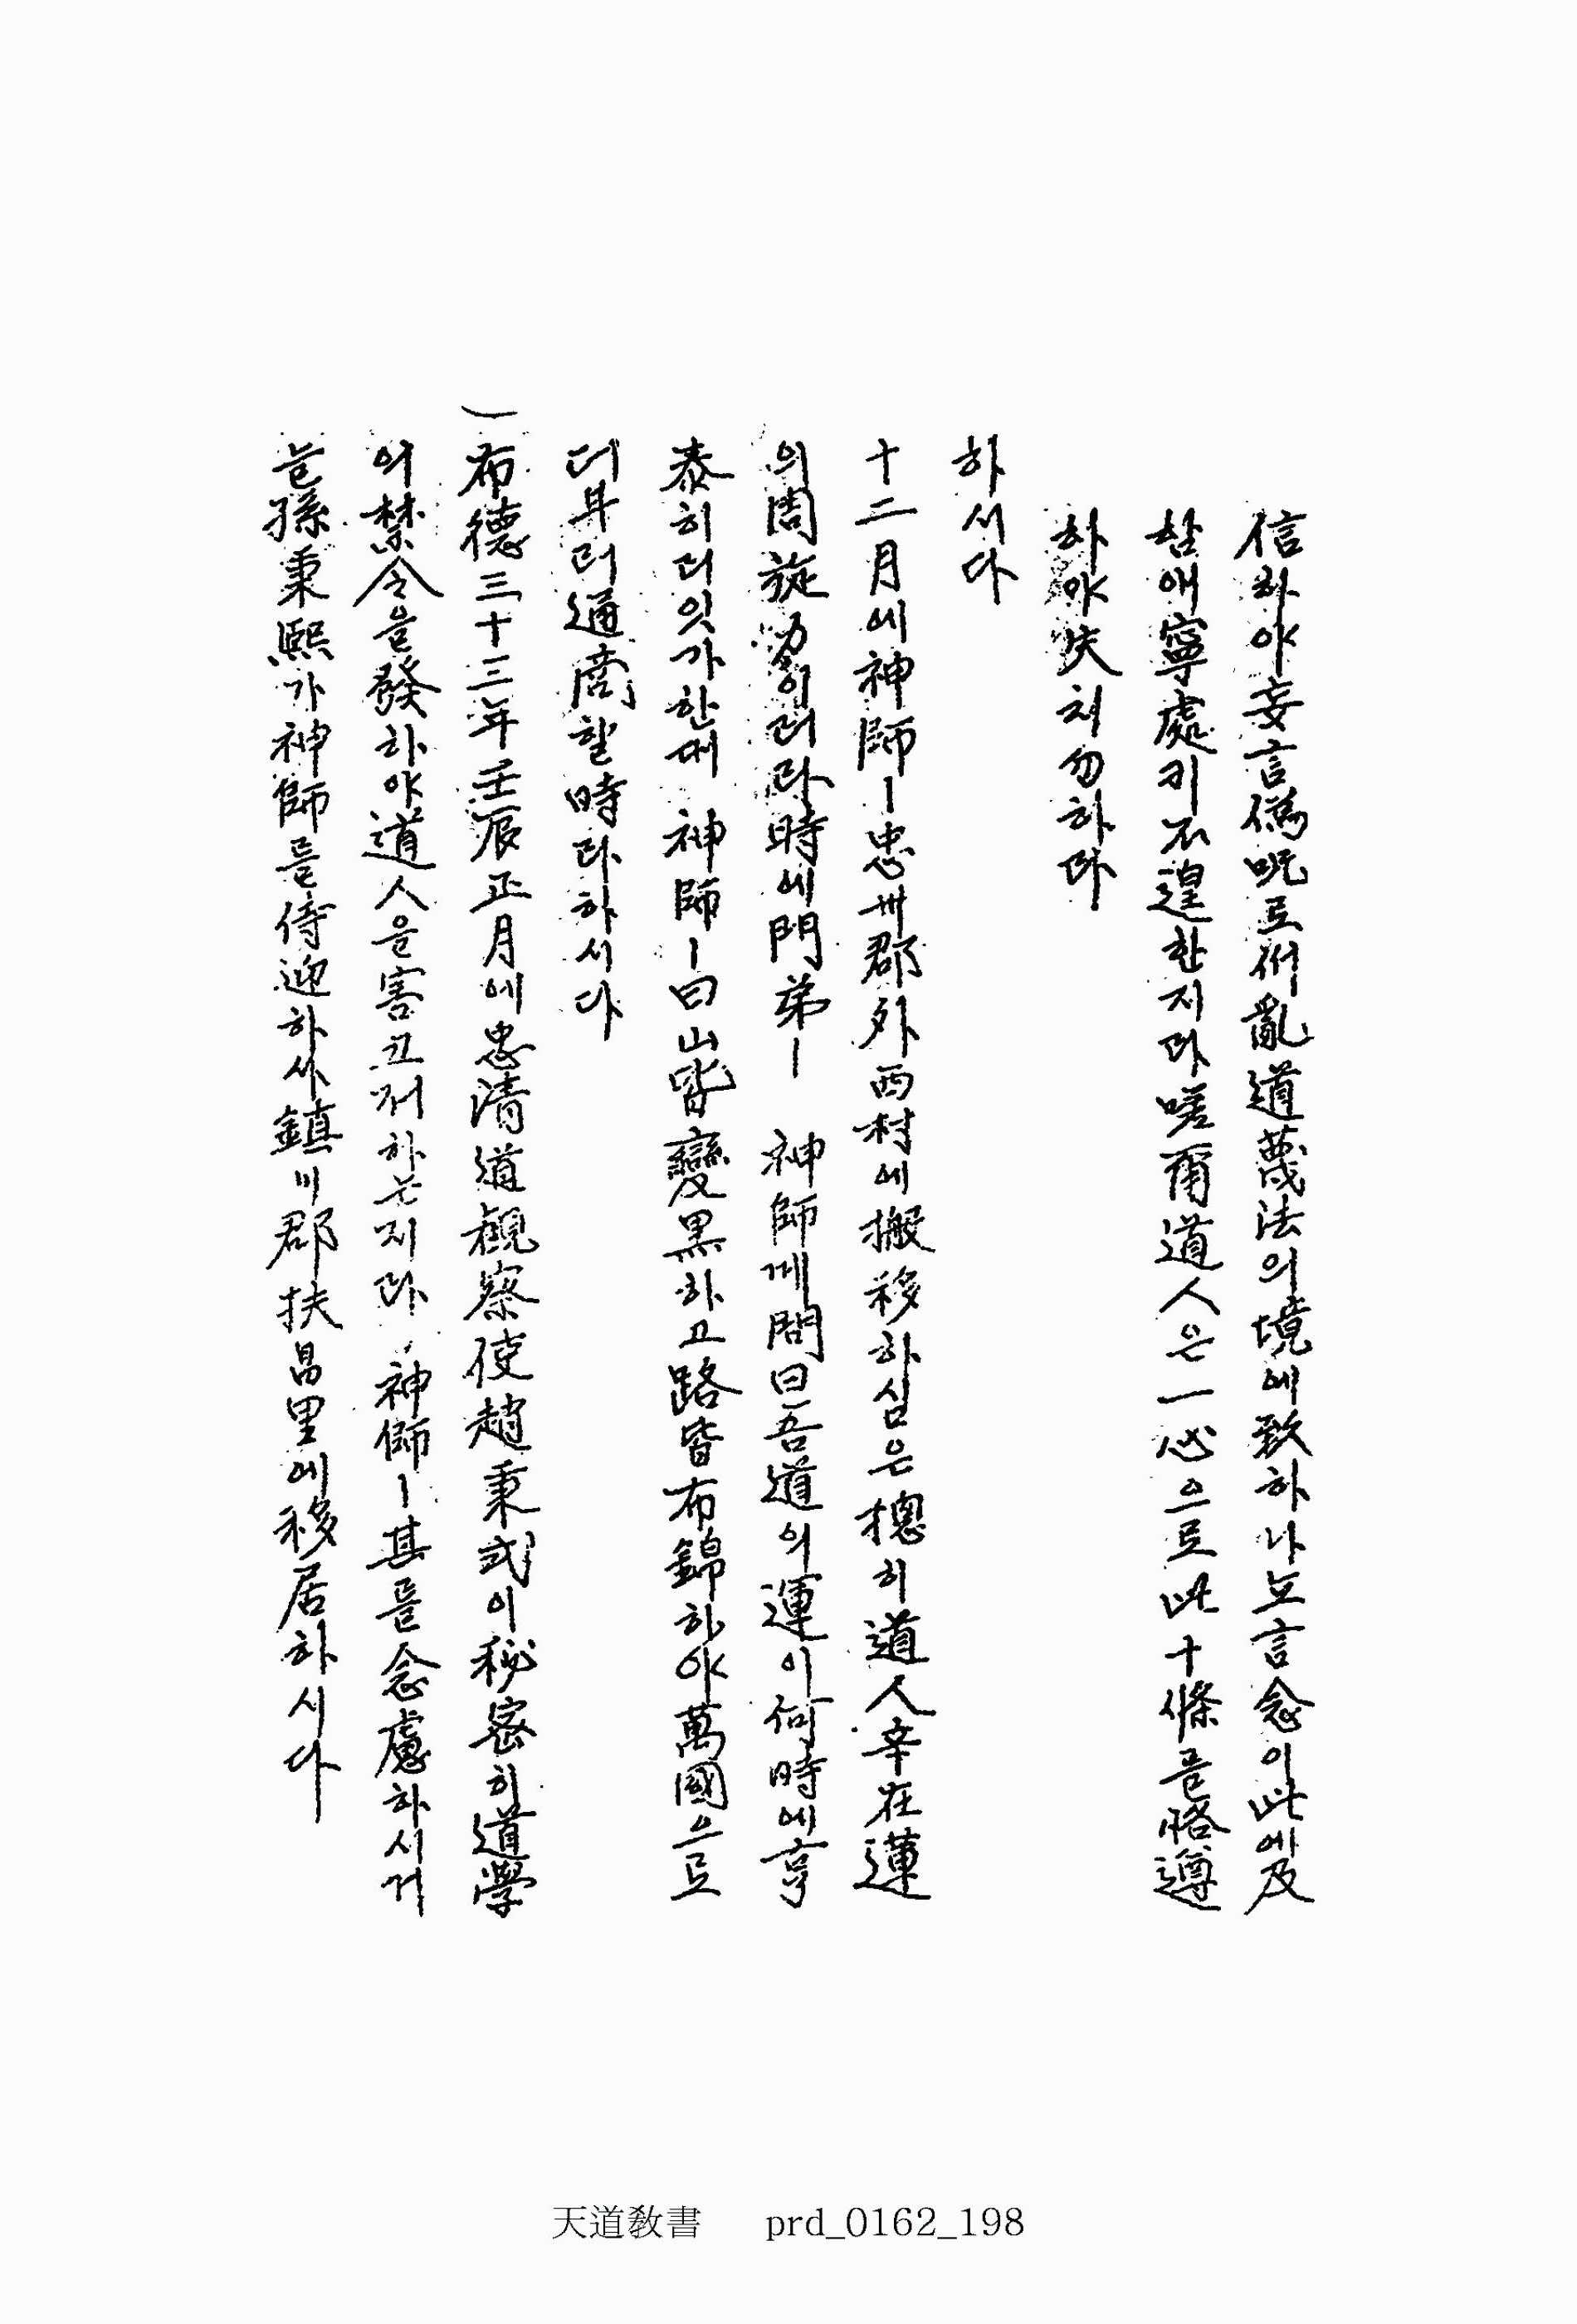 信하야妄言僞呪로써亂道蔑法의境에致하나노言念이此에及
함애寧處키不遑한지라嗟爾道人은一心으로此十條를恪遵
하야失치勿하라
하시다
十二月에神師ㅣ忠州郡外西村에搬移하심은摠히道人辛在蓮
의周旋力이러라時에門弟ㅣ 神師께問曰吾道의運이何時에亨
泰히리잇가한대 神師ㅣ曰山皆變黑하고路皆布錦하야萬國으로
더부러通商할時라하시다
布德三十三年壬辰正月에忠清道觀察使趙秉式이秘密히道學
의禁令을發하야道人을害고저하는지라 神師ㅣ其를念慮하시거
늘孫秉熙가神師를侍迎하사鎮川郡扶昌里에移居하시다
天道敎書 prd_0162_198